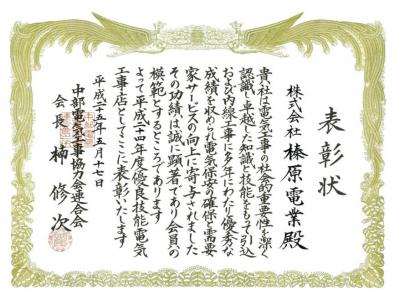 表彰状
株式会社 榛原電業殿
貴社は電気工事の社会的重要性を深く
認識し卓越した知識と技能をもって引込
および内線工事に多年にわたり優秀な
成績を収められ電気保安の確保と需要
家サービスの向上に寄与されました
その功績は誠に顕著であり会員の
模範とするところであります
よって平成二十四年度優良技能電気
工事店としてここに表彰いたします
平成二十五年五月十七日
中部電気工事協力会連合会
会長 楠 修次